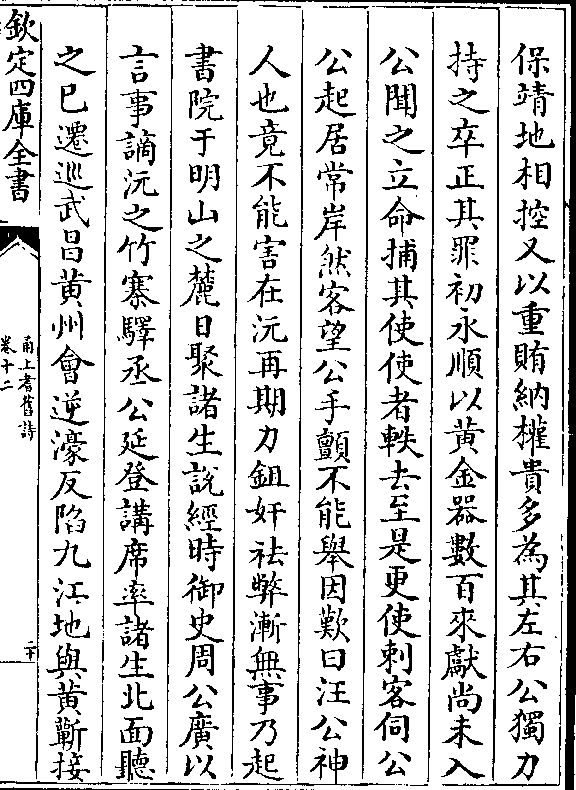 保靖地相控又以重賄納權貴多為其左右公獨力
持之卒正其罪初永順以黃金器數百來獻尚未入
公聞之立命捕其使使者軼去至是更使刺客伺公
公起居常岸然客望公手顫不能舉因歎曰汪公神
人也竟不能害在沅再期力鉏奸祛弊漸無事乃起
書院于明山之麓日聚諸生說經時御史周公廣以
言事謫沅之竹寨驛丞公延登講席率諸生北面聽
之已遷巡武昌黃州會逆濠反陷九江地與黃蘄接
欽定四庫全書
甬上耆舊詩
卷十二
二十